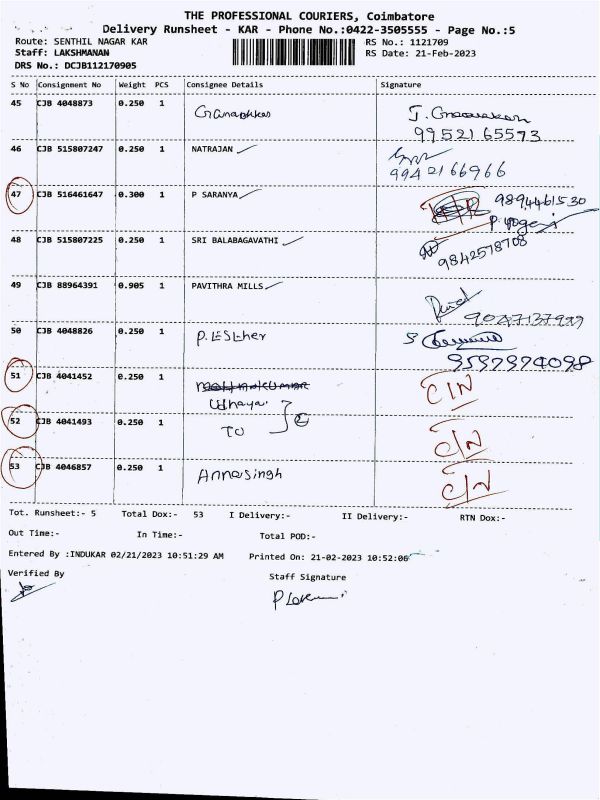 THE PROFESSIONAL COURIERS, Coimbatore
Delivery Runsheet - KAR - Phone No.:0422-3505555 - Page No.:5
Route: SENTHIL NAGAR KAR RS No.: 1121709
Staff: LAKSHMANAN RS Date: 21-Feb-2023
DRS No.: DCJB112170905
S No Consignment No Weight PCS Consignee Details Signature
45 CJB 4048873 0.250 1
9952165573
46 CJB 515807247 0.250 1 NATRAJAN
9942166966
47 CJB 516461647 0.300 1 P SARANYA 9894461530
48 CJB 515807225 0.250 1 SRI BALABAGAVATHI
9842578708
49 CJB 88964391 0.905 1 PAVITHRA MILLS
50 CJB 4048826 0.250 1 P. ESther
9597974098
51 CJB 4041452 0.250 1 C/N
Udhaya
52 CJB 4041493 0.250 1 TO C/N
53 CJB 4046857 0.250 1 Annasingh C/N
Tot. Runsheet:- 5 Total Dox:- 53 I Delivery:- II Delivery:- RTN Dox:-
Out Time:- In Time:- Total POD:-
Entered By :INDUKAR 02/21/2023 10:51:29 AM Printed On: 21-02-2023 10:52:06
Verified By Staff Signature